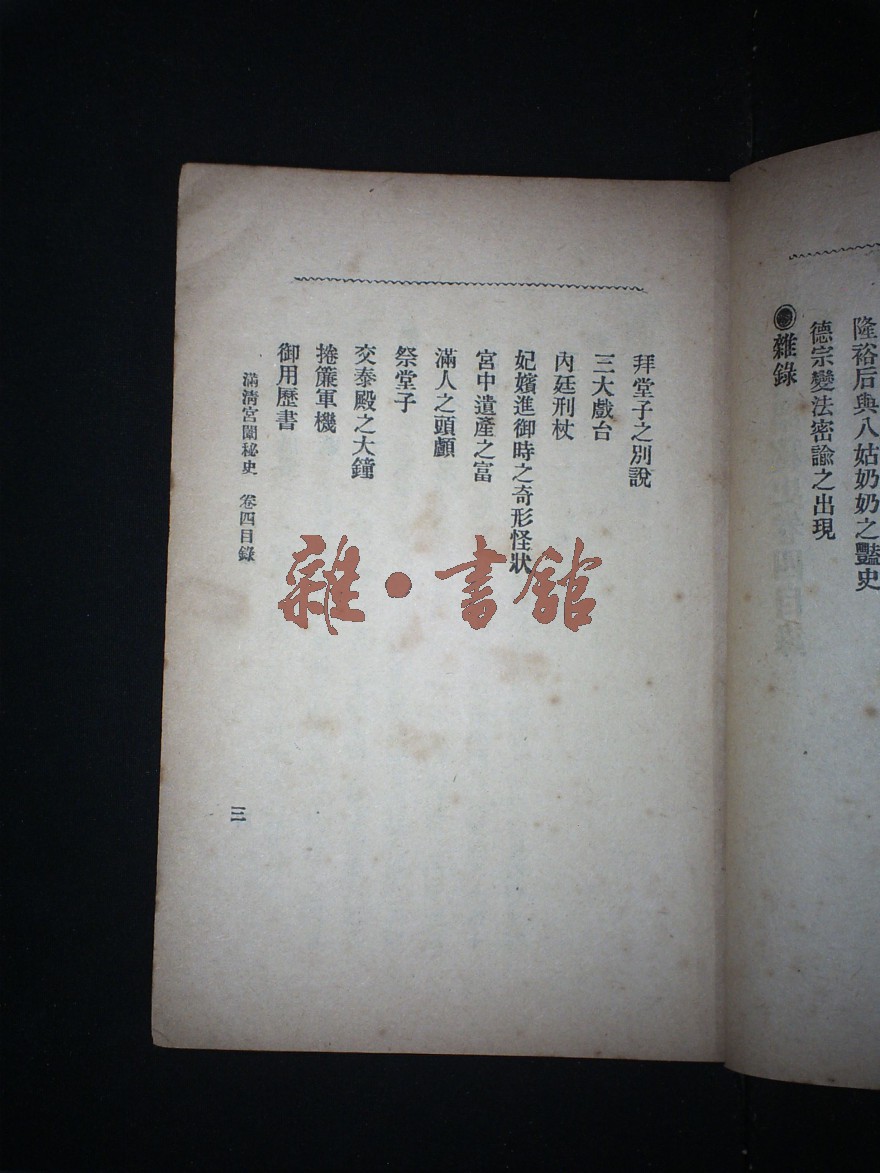 隆裕后與八姑奶奶之豔史
德宗變法密諭之出現
◉雜錄
拜堂子之別說
三大戲台
內廷刑杖
妃嬪進御時之奇形怪狀
宮中遺產之富
滿人之頭顱
祭堂子
交泰殿之大鐘
捲簾軍機
御用歷書
滿淸宮闈秘史 卷四目錄
三
雜·書舘